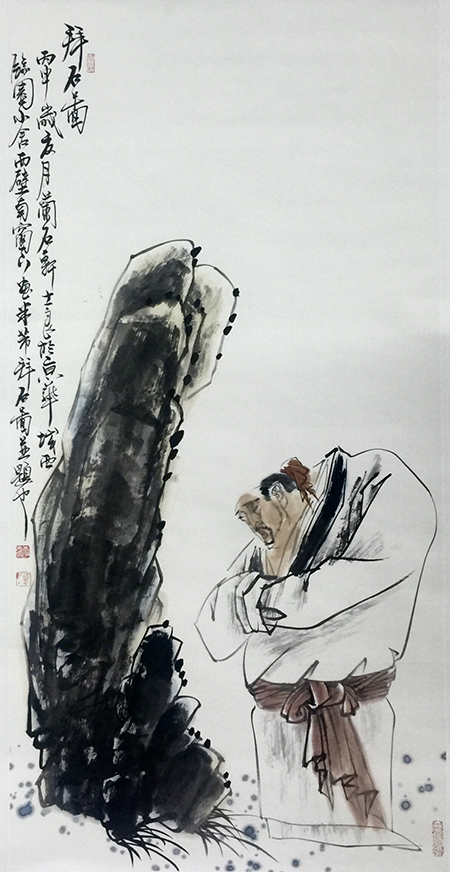 拜石圖
丙申歲亥月蘭石軒士於京華城西
園小舍西壁南窗下画米芾拜石圖並題也